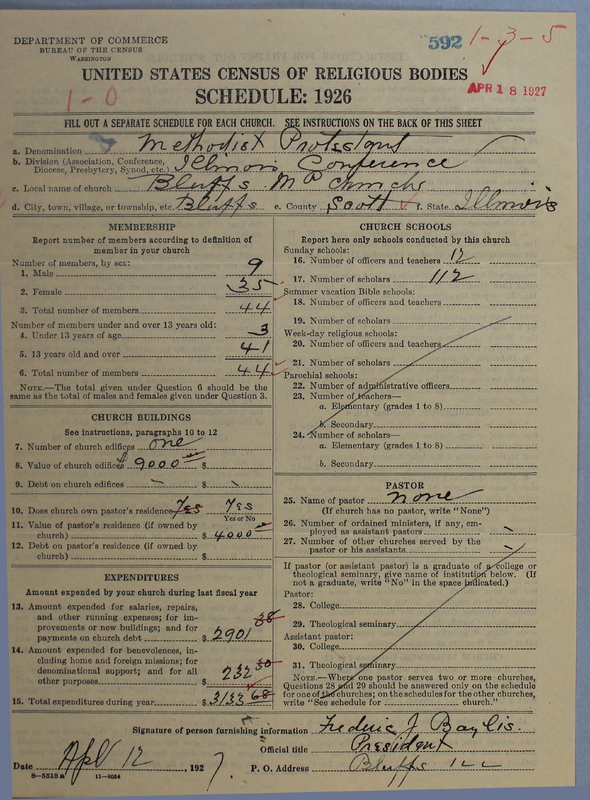 DEPARTMENT OF COMMERCE
BUREAU OF THE CENSUS
WASHINGTON
592
1-3-5
UNITED STATES CENSUS OF RELIGIOUS BODIES
APR 18 1927
1-0
SCHEDULE: 1926
FILL OUT A SEPARATE SCHEDULE FOR EACH CHURCH. SEE INSTRUCTIONS ON THE BACK OF THIS SHEET
a. Denomination Methodist Protestant
b. Division (Association, Conference, Diocese, Presbytery, Synod, etc.) Illinois Conference
c. Local name of church Bluffs M P Church
d. City, town, village, or township, etc. Bluffs e. County Scott f. State Illinois
MEMBERSHIP
Report number of members according to definition of
member in your church
Number of members, by sex:
1. Male 9
2. Female 35
3. Total number of members 44
Number of members under and over 13 years old:
4. Under 13 years of age 3
5. 13 years old and over 41
6. Total number of members 44
NOTE.—The total given under Question 6 should be
same as the total of males and females given under Question 3.
CHURCH BUILDINGS
See instructions, paragraphs 10 to 12
7. Number of church edifices one
8. Value of church edifices $ 9000 $
9. Debt on church edifices - $ -
10. Does church own pastor's residence Yes Yes
Yes or No
11. Value of pastor's residence (if owned by
church) $ 4000
12. Debt on pastor's residence (if owned by
church) $
EXPENDITURES
Amount expended by your church during last fiscal year
13. Amount expended for salaries, repairs,
and other running expenses; for im-
provements or new buildings; and for
payments on church debt $ 2901 38
14. Amount expended for benevolences, in-
cluding home and foreign missions; for
denominational support; and for all
other purposes $ 232 30
15. Total expenditures during year $ 3133 68
CHURCH SCHOOLS
Report here only schools conducted by this church
Sunday schools:
16. Number of officers and teachers 12
17. Number of scholars 112
Summer vacation Bible schools:
18. Number of officers and teachers
19. Number of scholars
Week-day religious schools:
20. Number of officers and teachers
21. Number of scholars
Parochial schools:
22. Number of administrative officers
23. Number of teachers—
a. Elementary (grades 1 to 8)
b. Secondary
24. Number of scholars—
a. Elementary (grades 1 to 8)
b. Secondary
PASTOR
25. Name of pastor none
(If church has no pastor, write "None")
26. Number of ordained ministers, if any, em-
ployed as assistant pastors -
27. Number of other churches served by the
pastor or his assistants -
If pastor (or assistant pastor) is a graduate of a college or
theological seminary, give name of institution below. (If
not a graduate, write "No" in the space indicated.)
Pastor:
28. College
29. Theological seminary
Assistant pastor:
30. College
31. Theological seminary
NOTE.—Where one pastor serves two or more churches,
Questions 28 and 29 should be answered only on the schedule
for one of the churches; on the schedules for the other churches,
write "See schedule for church."
Signature of person furnishing information Frederic J Baylis.
Official title President
Date Apl 12, 1927. P. O. Address Bluffs Ill
8-5518a 11-9084